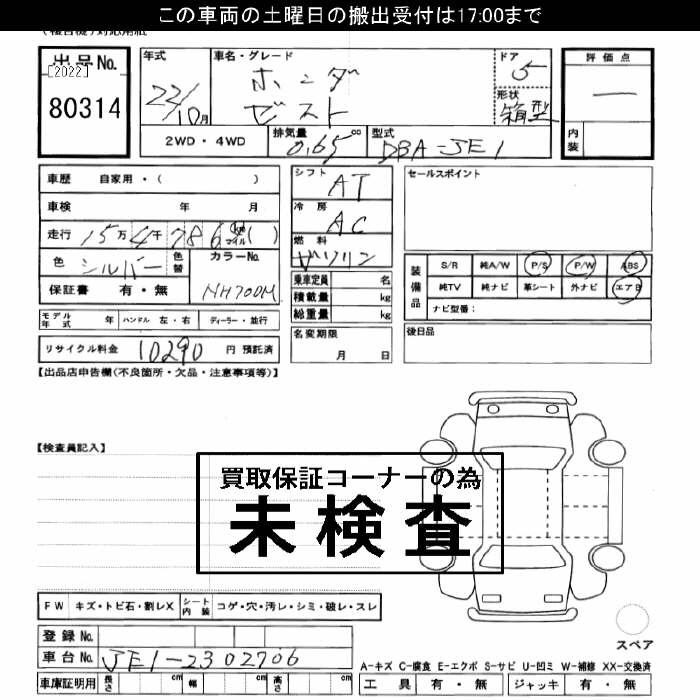 この車両の土曜日の搬出受付は17:00まで
出品No.
[2022]
80314
年式
22/10月
車名・グレード
ホンダ
ゼスト
ドア
5
形状
箱型
評価点
―
内装
2WD・4WD
排気量
0.65 cc
型式
DBA-JE1
車歴 自家用・( )
車検 年 月
走行 15万4千786 km マイル ( )
色 シルバー 色替
カラーNo.
NH700M
保証書 有・無
シフト
AT
冷房
AC
燃料
ガソリン
乗車定員 名
積載量 kg
総重量 kg
名変期限
月 日
セールスポイント
装備品
S/R 純A/W P/S P/W ABS
純TV 純ナビ 革シート 外ナビ エアB
ナビ型番:
後日品
モデル年式 年 ハンドル 左・右 ディーラー・並行
リサイクル料金 10290 円 預託済
【出品店申告欄(不良箇所・欠品・注意事項等)】
【検査員記入】
買取保証コーナーの為
未検査
FW キズ・トビ石・割レX シート内装 コゲ・穴・汚レ・シミ・破レ・スレ
登録No.
車台No. JE1-2302706
車庫証明用 長さ cm 幅 cm 高さ cm
スペア
A-キズ C-腐食 E-エクボ S-サビ U-凹ミ W-補修 XX-交換済
工具 有・無 ジャッキ 有・無